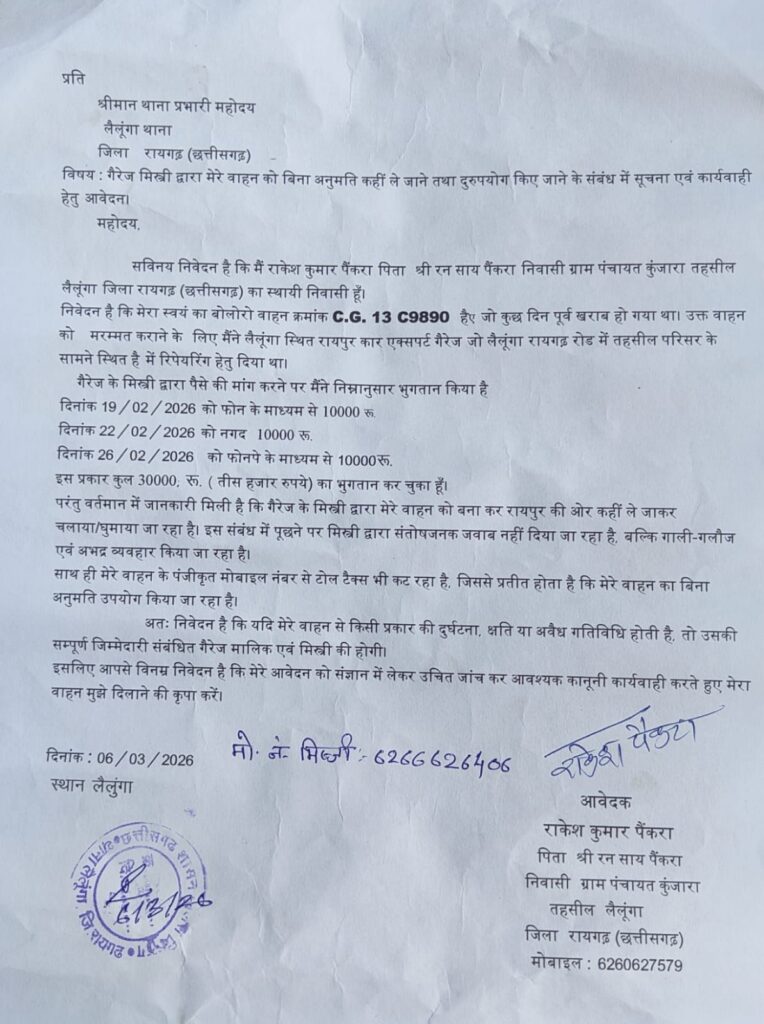 प्रति
श्रीमान थाना प्रभारी महोदय
लैलूंगा थाना
जिला रायगढ़ (छत्तीसगढ़)
विषय : गैरेज मिस्त्री द्वारा मेरे वाहन को बिना अनुमति कहीं ले जाने तथा दुरुपयोग किए जाने के संबंध में सूचना एवं कार्यवाही
हेतु आवेदन।
महोदय,
सविनय निवेदन है कि मैं राकेश कुमार पैंकरा पिता श्री रन साय पैंकरा निवासी ग्राम पंचायत कुंजारा तहसील
लैलूंगा जिला रायगढ़ (छत्तीसगढ़) का स्थायी निवासी हूँ।
निवेदन है कि मेरा स्वयं का बोलोरो वाहन क्रमांक C.G. 13 C9890 हैए जो कुछ दिन पूर्व खराब हो गया था। उक्त वाहन
को मरम्मत कराने के लिए मैंने लैलूंगा स्थित रायपुर कार एक्सपर्ट गैरेज जो लैलूंगा रायगढ़ रोड में तहसील परिसर के
सामने स्थित है में रिपेयरिंग हेतु दिया था।
गैरेज के मिस्त्री द्वारा पैसे की मांग करने पर मैंने निम्नानुसार भुगतान किया है
दिनांक 19/02/2026 को फोन के माध्यम से 10000 रू.
दिनांक 22/02/2026 को नगद 10000 रू.
दिनांक 26/02/2026 को फोनपे के माध्यम से 10000रू.
इस प्रकार कुल 30000; रू. ( तीस हजार रुपये) का भुगतान कर चुका हूँ।
परंतु वर्तमान में जानकारी मिली है कि गैरेज के मिस्त्री द्वारा मेरे वाहन को बना कर रायपुर की ओर कहीं ले जाकर
चलाया/घुमाया जा रहा है। इस संबंध में पूछने पर मिस्त्री द्वारा संतोषजनक जवाब नहीं दिया जा रहा है, बल्कि गाली-गलौज
एवं अभद्र व्यवहार किया जा रहा है।
साथ ही मेरे वाहन के पंजीकृत मोबाइल नंबर से टोल टैक्स भी कट रहा है, जिससे प्रतीत होता है कि मेरे वाहन का बिना
अनुमति उपयोग किया जा रहा है।
अतः निवेदन है कि यदि मेरे वाहन से किसी प्रकार की दुर्घटना, क्षति या अवैध गतिविधि होती है, तो उसकी
सम्पूर्ण जिम्मेदारी संबंधित गैरेज मालिक एवं मिस्त्री की होगी।
इसलिए आपसे विनम्र निवेदन है कि मेरे आवेदन को संज्ञान में लेकर उचित जांच कर आवश्यक कानूनी कार्यवाही करते हुए मेरा
वाहन मुझे दिलाने की कृपा करें।
दिनांक : 06/03/2026
मो. नं- मिस्त्री :- 6266626406
राकेश पैंकरा
स्थान लैलुंगा
आवेदक
राकेश कुमार पैंकरा
पिता श्री रन साय पैंकरा
निवासी ग्राम पंचायत कुंजारा
तहसील लैलूंगा
जिला रायगढ़ (छत्तीसगढ़)
मोबाइल : 6260627579
छत्तीसगढ़ शासन
थाना लैलूंगा, जि.रायगढ़
6/3/26